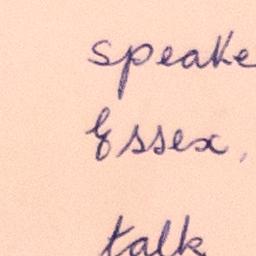 speake
Essex,
talk